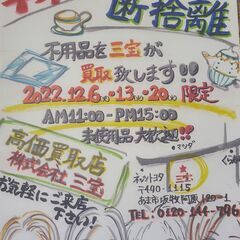 断捨離
不用品を三宝が
買取致します!!
2022.12.6(火)・13(火)・20(火)限定
AM11:00-PM15:00
未使用品大歓迎!!
高価買取店
株式会社三宝
お気軽にご来店
下さい!
ネッツトヨタ
三宝
〒490-1115
TEL:0120-144-796